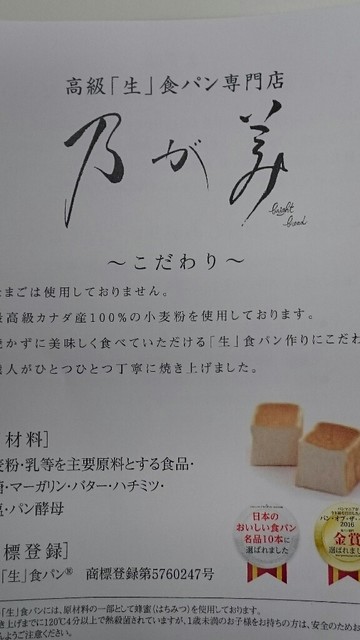 高級「生」食パン専門店
乃が美
bright bread
～こだわり～
まごは使用しておりません。
最高級カナダ産100%の小麦粉を使用しております。
かずに美味しく食べていただける「生」食パン作りにこだわ
人がひとつひとつ丁寧に焼き上げました。
材料]
麦粉・乳等を主要原料とする食品・
・マーガリン・バター・ハチミツ・
・パン酵母
日本の
おいしい食パン
名品10本に
選ばれました
パン・オブ・ザ・
2016
金賞
選ばれま
標登録]
「生」食パン® 商標登録第5760247号
「生」食パンには、原材料の一部として蜂蜜(はちみつ)を使用しております。
き上げまでに120℃4分以上で熱殺菌されていますが、1歳未満のお子様をお持ちの方は、安全のためお
ようご注意ください。